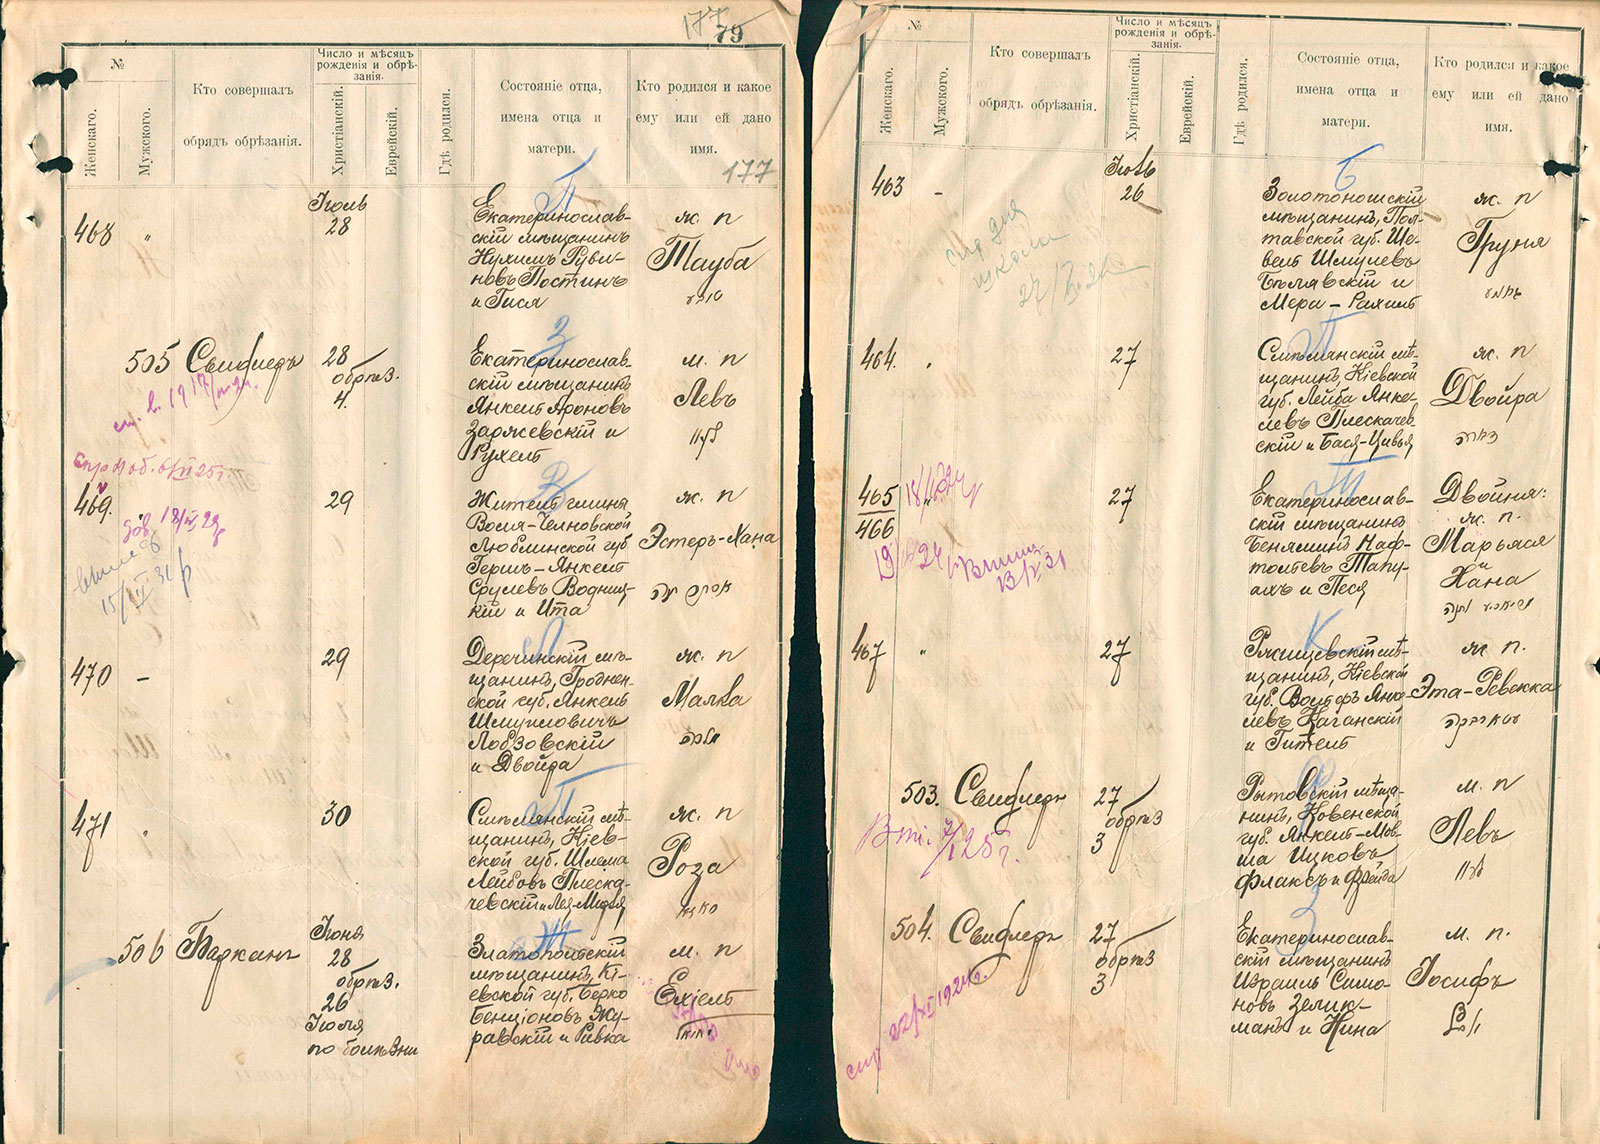 177
79
№
Женскаго.
Мужского.
Кто совершалъ
обрядъ обрѣзанія.
Число и мѣсяцъ
рожденія и обрѣ-
занія.
Христіанскій.
Еврейскій.
Гдѣ родился.
Состояніе отца,
имена отца и
матери.
Кто родился и какое
ему или ей дано
имя.
177
468
"
Іюль
28
П
Екатеринослав-
скій мѣщанинъ
Нухимъ Руви-
новъ Постинъ
и Гися
ж. п
Тауба
505
Свифлеръ
28
обрѣз.
4.
З
Екатеринослав-
скій мѣщанинъ
Янкель Ароновъ
Заржевскій и
Рухель
м. п
Левъ
469.
29
В
Житель гмина
Воля-
Люблинской губ
Гершъ-Янкель
Срулевъ Водниц-
кій и Ита
ж. п
Эстеръ-Хана
470
–
29
Л
Деречинскій мѣ-
щанинъ, Гроднен-
ской губ. Янкель
Шмуиловичъ
Лобзовскій
и Двойра
ж. п
Малка
מלכה
471
"
30
П
Смѣлянскій мѣ-
щанинъ, Кіев-
ской губ. Шлема
Лейбовъ Плеска-
чевскій и Лея-
ж. п
Роза
506
Барканъ
Іюня
28
обрѣз.
26
Іюля
по болѣзни
Ж
Златопольскій
мѣщанинъ, Кі-
евской губ. Берко
Бенціоновъ Жу-
равскій и Ривка
м. п
Ехіель
№
Женскаго.
Мужского.
Кто совершалъ
обрядъ обрѣзанія.
Число и мѣсяцъ
рожденія и обрѣ-
занія.
Христіанскій.
Еврейскій.
Гдѣ родился.
Состояніе отца,
имена отца и
матери.
Кто родился и какое
ему или ей дано
имя.
463
–
Іюль
26
Б
Золотоношскій
мѣщанинъ, Пол-
тавской губ. Ше-
вель Шмулевъ
Бѣлявскій и
Мера-Рахиль
ж. п
Груня
для
школы
464.
"
27
П
Смѣлянскій мѣ-
щанинъ, Кіевской
губ. Лейба Янке-
левъ Плескачев-
скій и Бася-Цивья
ж. п
Двойра
465
466
27
Т
Екатеринослав-
скій мѣщанинъ
Беняминъ Наф-
толевъ Тапу-
ахъ и Песя
Двойня:
ж. п.
Марьяся
и
Хана
467
"
27
К
Ржищевскій мѣ-
щанинъ, Кіевской
губ. Вольфъ Янке-
левъ Каганскій
и Гитель
ж. п.
Эта-Ревекка
503.
Свифлеръ
27
обрѣз
3
Ф
Рытовскій мѣща-
нинъ, Ковенской
губ. Янкель-Мов-
ша Ицковъ
Флаксъ и Фрейда
м. п
Левъ
504.
Свифлеръ
27
обрѣз
3
З
Екатеринослав-
скій мѣщанинъ
Израиль Симо-
новъ Зелик-
манъ и Нина
м. п.
Іосифъ